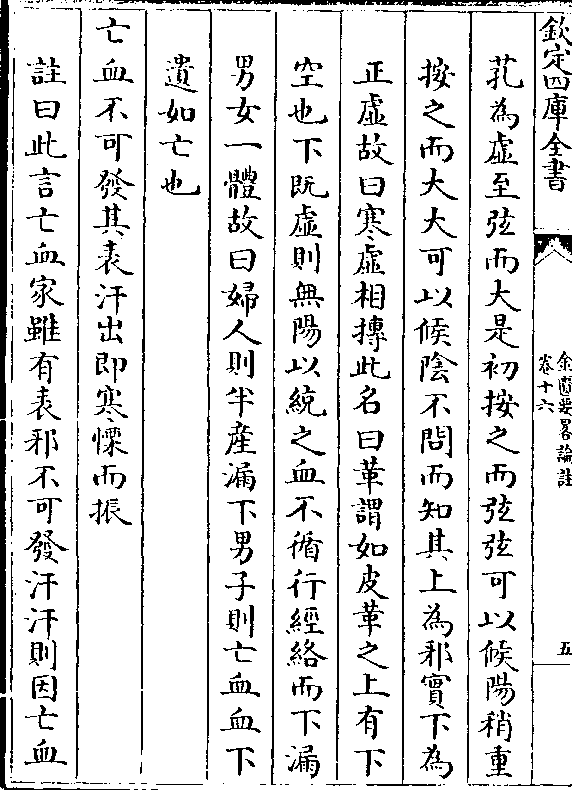 欽定四庫全書
金匱要畧論註
卷十六
五
芤為虛至弦而大是初按之而弦弦可以候陽稍重
按之而大大可以候陰不問而知其上為邪實下為
正虛故曰寒虛相摶此名曰革謂如皮革之上有下
空也下既虛則無陽以統之血不循行經絡而下漏
男女一體故曰婦人則半産漏下男子則亡血血下
遺如亡也
亡血不可發其表汗出即寒慄而振
註曰此言亡血家雖有表邪不可發汗汗則因亡血